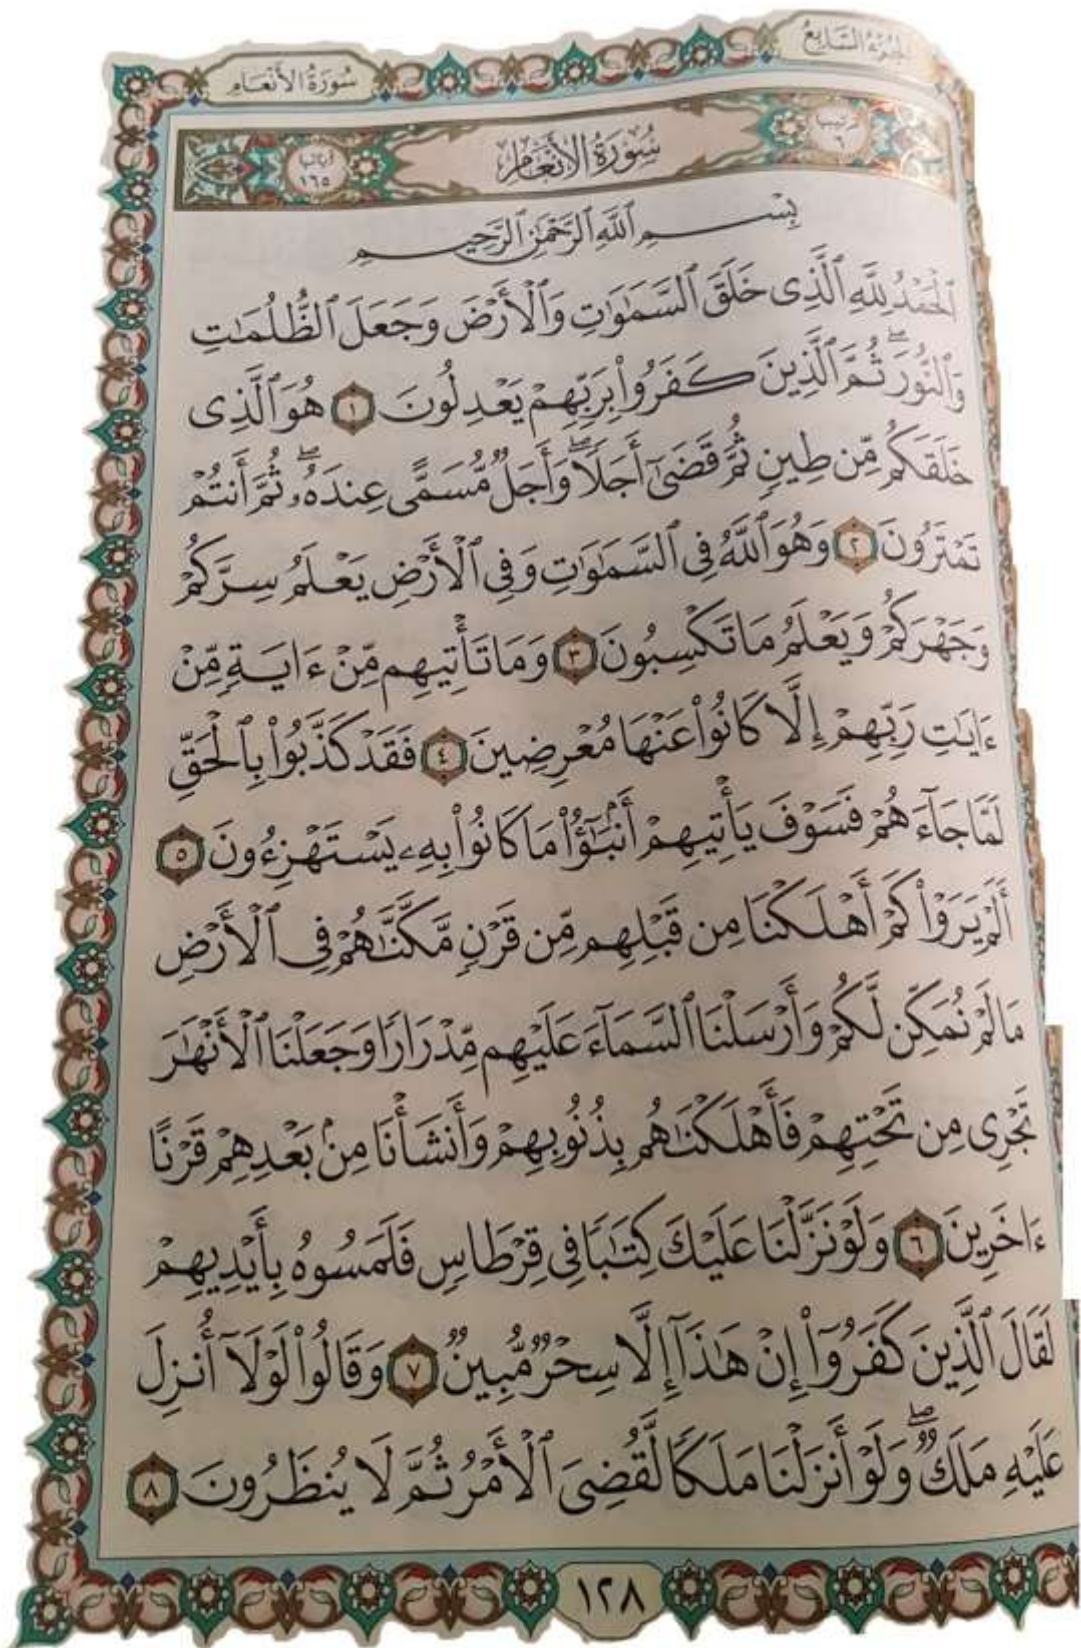 سُورَةُ الأَنْعَامِ
الجُزْءُ السَّابِعُ
ترتيبها ٦
سُورَةُ الأَنْعَامِ
آياتها ١٦٥
بِسْمِ ٱللَّهِ ٱلرَّحْمَٰنِ ٱلرَّحِيمِ
ٱلْحَمْدُ لِلَّهِ ٱلَّذِى خَلَقَ ٱلسَّمَٰوَٰتِ وَٱلْأَرْضَ وَجَعَلَ ٱلظُّلُمَٰتِ
وَٱلنُّورَ ۖ ثُمَّ ٱلَّذِينَ كَفَرُوا۟ بِرَبِّهِمْ يَعْدِلُونَ ١ هُوَ ٱلَّذِى
خَلَقَكُم مِّن طِينٍ ثُمَّ قَضَىٰٓ أَجَلًا ۖ وَأَجَلٌ مُّسَمًّى عِندَهُۥ ۖ ثُمَّ أَنتُمْ
تَمْتَرُونَ ٢ وَهُوَ ٱللَّهُ فِى ٱلسَّمَٰوَٰتِ وَفِى ٱلْأَرْضِ يَعْلَمُ سِرَّكُمْ
وَجَهْرَكُمْ وَيَعْلَمُ مَا تَكْسِبُونَ ٣ وَمَا تَأْتِيهِم مِّنْ ءَايَةٍ مِّنْ
ءَايَٰتِ رَبِّهِمْ إِلَّا كَانُوا۟ عَنْهَا مُعْرِضِينَ ٤ فَقَدْ كَذَّبُوا۟ بِٱلْحَقِّ
لَمَّا جَآءَهُمْ فَسَوْفَ يَأْتِيهِمْ أَنۢبَٰٓؤُا۟ مَا كَانُوا۟ بِهِۦ يَسْتَهْزِءُونَ ٥
أَلَمْ يَرَوْا۟ كَمْ أَهْلَكْنَا مِن قَبْلِهِم مِّن قَرْنٍ مَّكَّنَّٰهُمْ فِى ٱلْأَرْضِ
مَا لَمْ نُمَكِّن لَّكُمْ وَأَرْسَلْنَا ٱلسَّمَآءَ عَلَيْهِم مِّدْرَارًا وَجَعَلْنَا ٱلْأَنْهَٰرَ
تَجْرِى مِن تَحْتِهِمْ فَأَهْلَكْنَٰهُم بِذُنُوبِهِمْ وَأَنشَأْنَا مِنۢ بَعْدِهِمْ قَرْنًا
ءَاخَرِينَ ٦ وَلَوْ نَزَّلْنَا عَلَيْكَ كِتَٰبًا فِى قِرْطَاسٍ فَلَمَسُوهُ بِأَيْدِيهِمْ
لَقَالَ ٱلَّذِينَ كَفَرُوٓا۟ إِنْ هَٰذَآ إِلَّا سِحْرٌ مُّبِينٌ ٧ وَقَالُوا۟ لَوْلَآ أُنزِلَ
عَلَيْهِ مَلَكٌ ۖ وَلَوْ أَنزَلْنَا مَلَكًا لَّقُضِىَ ٱلْأَمْرُ ثُمَّ لَا يُنظَرُونَ ٨
١٢٨